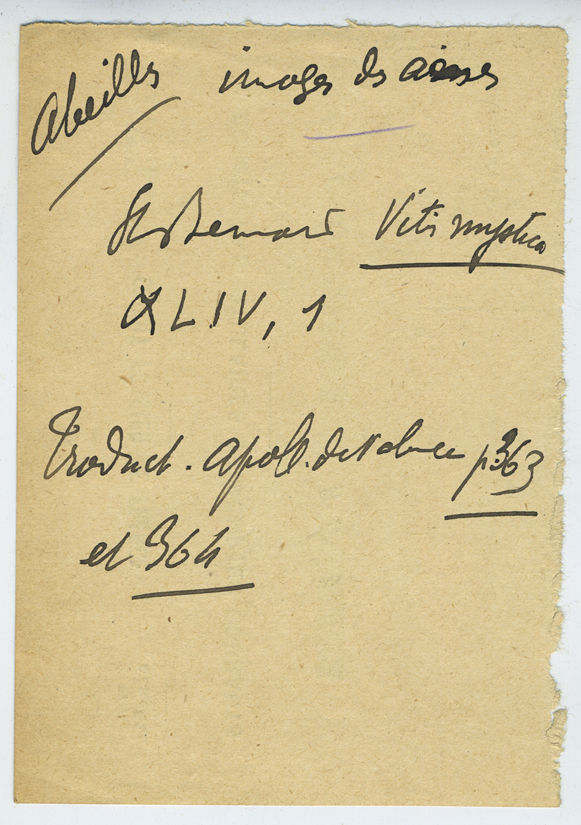 Abeilles images ds âmes
St Bernard Vitis mystica
XLIV, 1
Traduct. Apoll. de Valence p 363
et 364